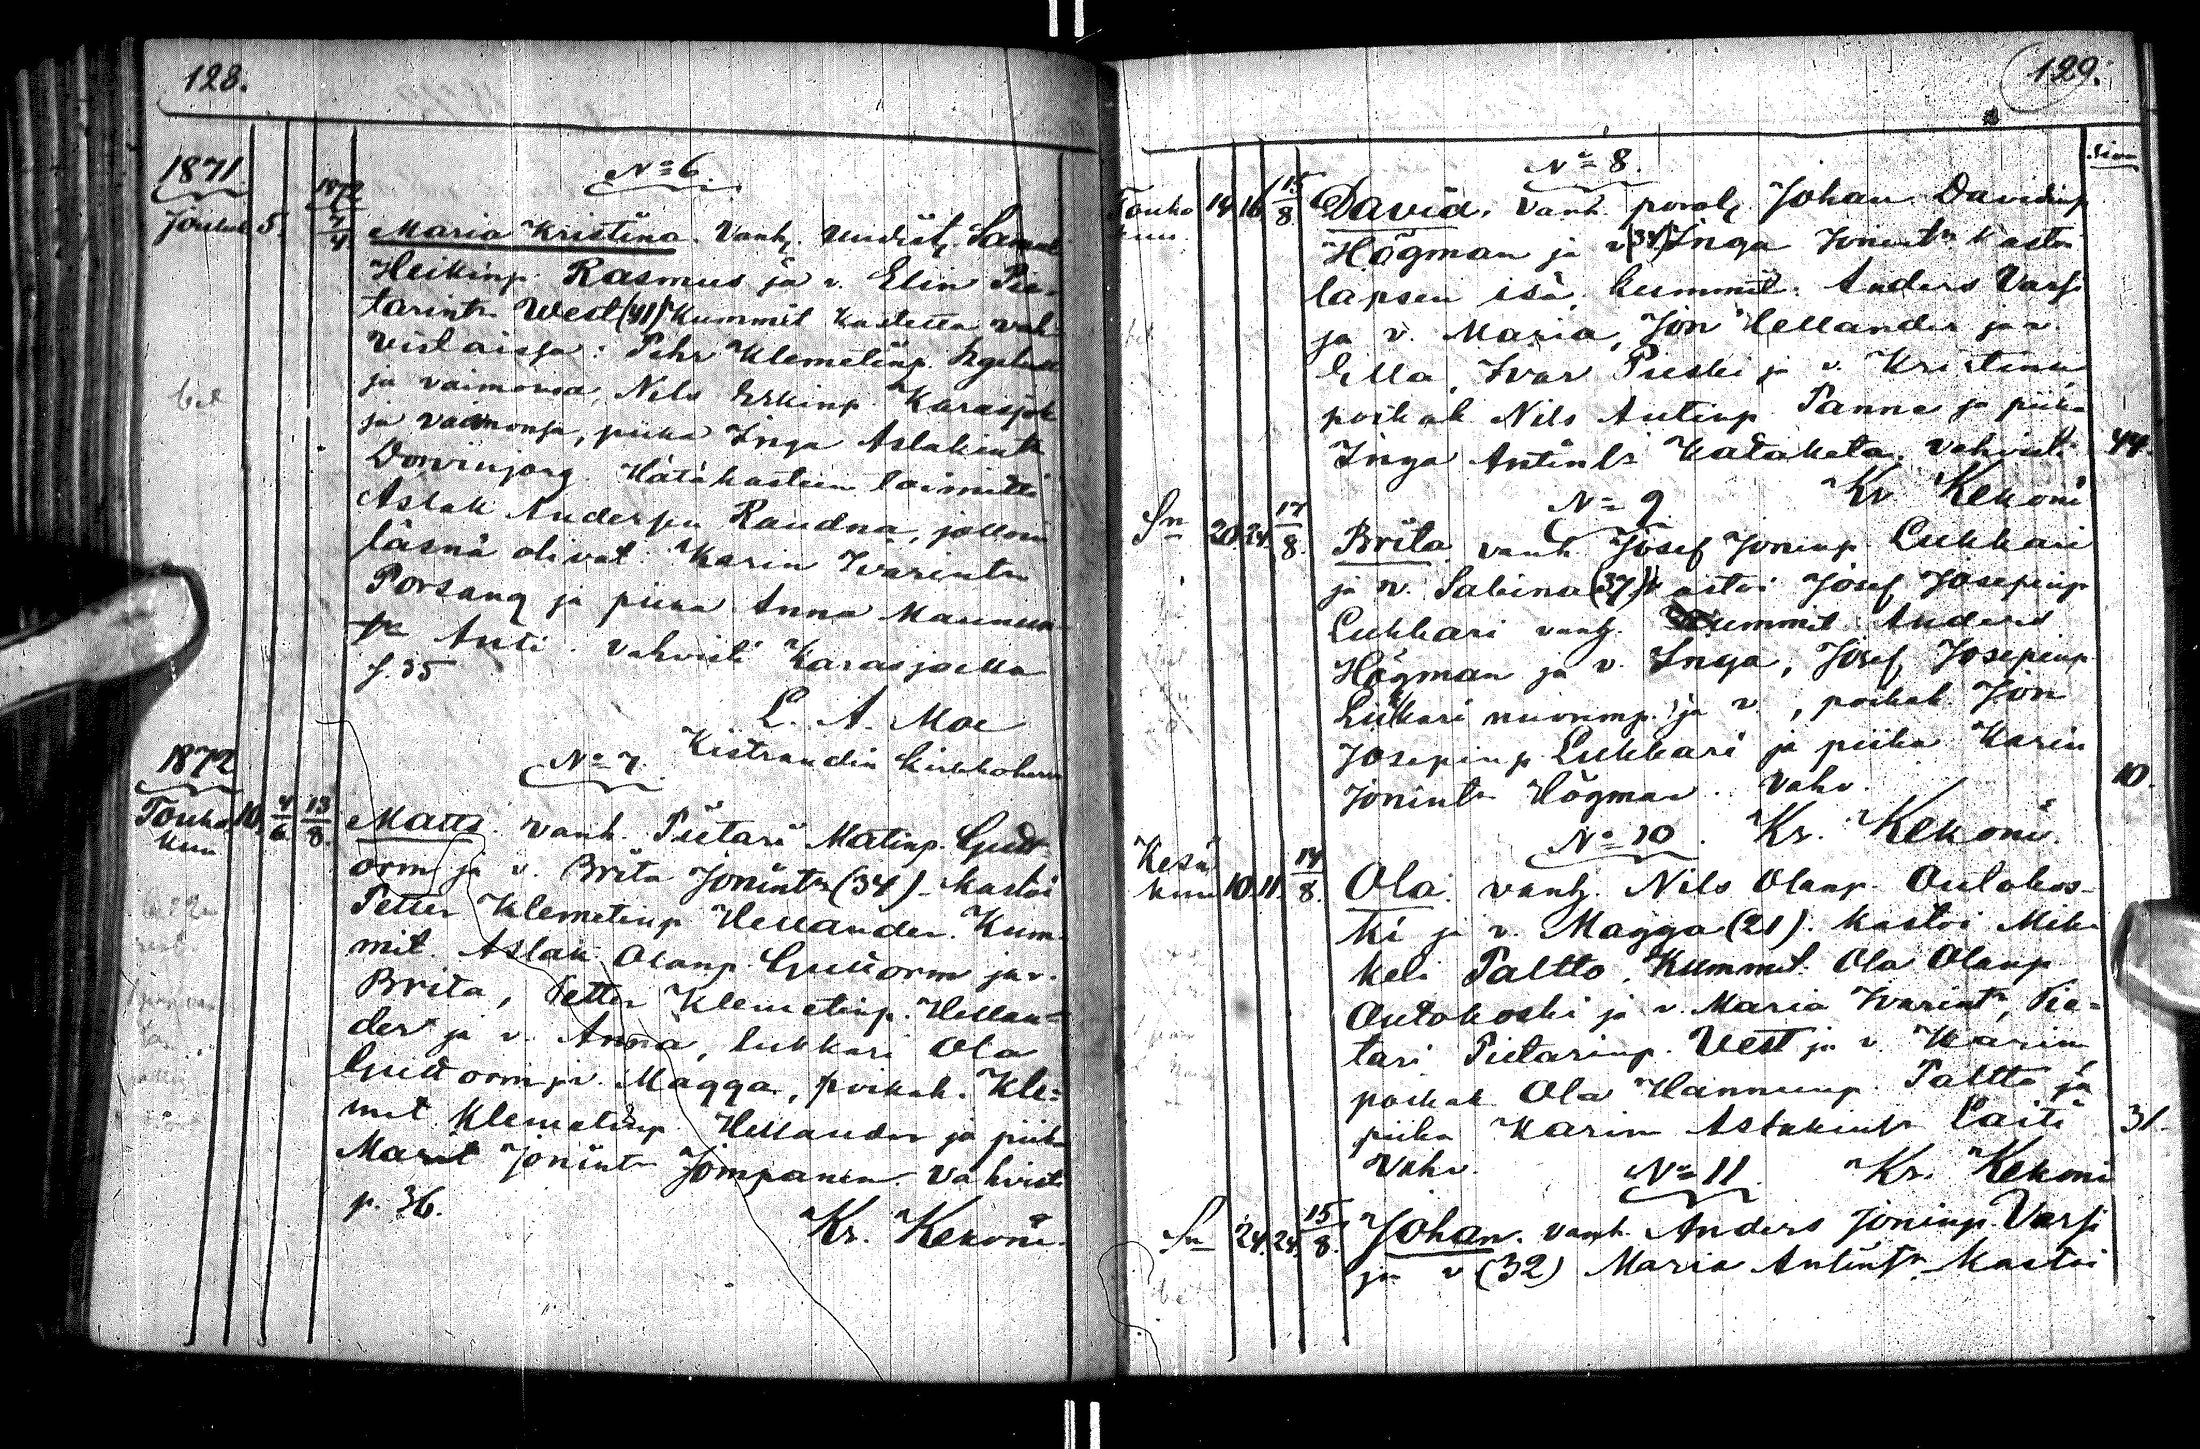 128.
1871
Nº 6.
1872
Jouluk 5. 7/4
Maria Kristina. Vanh. Uudist. Samul
Heikinp. Rasmus ja v. Elin Pie-
tarintr West (41) Kummit kastetta vah-
vistaissa: Pehr Klemetinp.
ja vaimonsa, Nils Erkinp. Karasjok
ja vaimonsa, piika Inga Aslakintr
Dorvinjarg. Hätäkasteen toimitti
Aslak Andersen Raudna, jolloin
läsnä olivat: Karin Ivarintr
Porsang ja piika Anna Maunun-
Anti. vahvisti Karasjoella
f. 35
L. A. Moe
Kistrandin Kirkkoherra
1872
Nº 7.
Touko kuu 10. 4/6. 13/8.
Matts. vanh. Pietari Matinp. Gutt
orm ja v. Brita Jonintr (34) - Kastoi
Petter Klemetinp Hellander. Kum-
mit. Aslak Olanp. Guttorm ja v.
Brita, Petter Klemetinp. Hellan-
der ja v. Anna, lukkari Ola
Guttorm ja v. Magga, poikah. Kle-
met Klemetinp Hellander ja piika
Marit Jonintr Jompanen. Vahvisti
p. 36.
Kr. Kekoni.
129.
Nº 8.
Touko kuu. 14 16 15/8.
David. Vanh. poroly. Johan Davidinp
Högman ja v (34) Inga Jonintr kastoi
lapsen isä. Kummit: Anders Varsi
ja v. Maria, Jon Hellander ja v.
Ella, Ivar Pieski ja v. Kristina
poikah Nils Antinp. Panne ja piika
Inga Antintr Kataketa. Vahvisti 44.
Kr Kekoni
Nº 9.
Sn 20. 24. 17/8.
Brita vanh. Josef Joninp. Lukkari
ja v. Sabina (37) kastoi Josef Josepinp
Lukkari vanh. Kummit Anders
Högman ja v. Inga, Josef Josepinp
Lukkari nuoremp. ja v. , poikah. Jon
Josepinp. Lukkari ja piika Karin
Jonintr Högman. Vahv. 10.
Nº 10. Kr. Kekoni.
Kesä kuu 10. 11. 14/8.
Ola. vanh. Nils Olanp. Outokos-
ki ja v. Magga (21). kastoi Mik-
keli Paltto. Kummit: Ola Olanp
Outokoski ja v. Maria Ivarintr, Pie-
tari Pietarinp. Vest ja v. Karin
poikah Ola Hannunp. Paltto ja
piika Karin Aslakintr Laiti 31.
Vahv. Nº 11. Kr. Kekoni
Sn 24. 24. 15/8.
Johan. vanh. Anders Joninp. Varsi
ja v (32) Maria Antintr. Kastoi